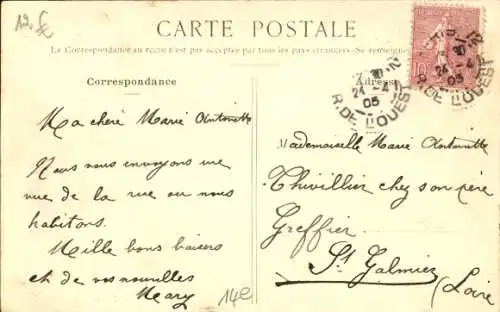 12.f
CARTE POSTALE
La Correspondance au recto n'est pas acceptée par tous les pays étrangers (Se renseigner
Correspondance
Ma chère Marie Antoinette
Nous vous envoyons une
vue de la rue ou nous
habitons.
Mille bons baisers
et de vos nouvelles
Mary
14e
Adresse
24 -4
05
R. DE L'OUEST
24 -4
05
R. DE L'OUEST
10
Mademoiselle Marie Antoinette
Thivillier chez son père
Greffier
St Galmier
(Loire